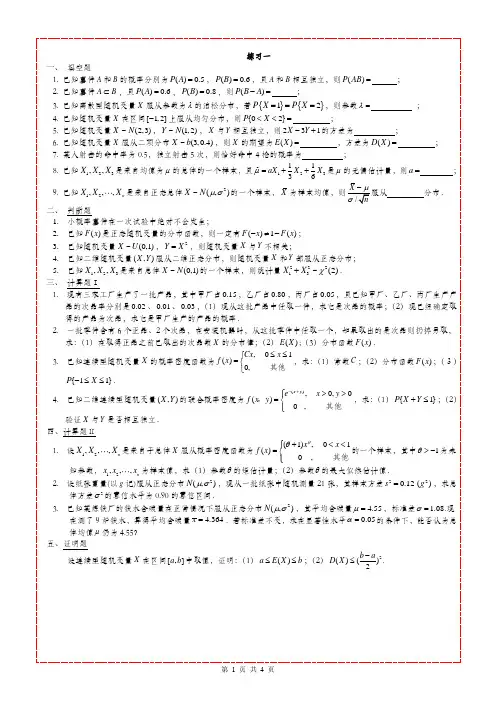 练习一
一、 填空题
1. 已知事件A和B的概率分别为P(A)=0.5，P(B)=0.6，且A和B相互独立，则P(AB)= ；
2. 已知事件A⊂B，且P(A)=0.6，P(B)=0.8，则P(B−A)= ；
3. 已知离散型随机变量X服从参数为λ的泊松分布，若P{X=1}=P{X=2}，则参数λ= ；
4. 已知随机变量X在区间[−1,2]上服从均匀分布，则P{0<X<2}= ；
5. 已知随机变量X~N(2,3)，Y~N(1,2)，X与Y相互独立，则2X−3Y+1的方差为 ；
6. 已知随机变量X服从二项分布X~b(3,0.4)，则X的期望为E(X)= ，方差为D(X)= ；
7. 某人射击的命中率为0.5，独立射击5次，则恰好命中4枪的概率为 ；
8. 已知X₁,X₂,X₃是来自均值为μ的总体的一个样本，且μ̂=aX₁+1/3X₂+1/6X₃是μ的无偏估计量，则a= ；
9. 已知X₁,X₂,⋯,Xₙ是来自正态总体X~N(μ,σ²)的一个样本，X̄为样本均值，则(X̄−μ)/(σ/√n)服从 分布．
二、 判断题
1. 小概率事件在一次试验中绝对不会发生；
2. 已知F(x)是正态随机变量的分布函数，则一定有F(−x)=1−F(x)；
3. 已知随机变量X~U(0,1)，Y=X²，则随机变量X与Y不相关；
4. 已知二维随机变量(X,Y)服从二维正态分布，则随机变量X和Y都服从正态分布；
5. 已知X₁,X₂,X₃是来自总体X~N(0,1)的一个样本，则统计量X₁²+X₃²~χ²(2)．
三、 计算题I
1. 现有三家工厂生产了一批产品，其中甲厂占0.15，乙厂占0.80，丙厂占0.05，且已知甲厂、乙厂、丙厂生产产
品的次品率分别是0.02、0.01、0.03，(1)现从这批产品中任取一件，求它是次品的概率；(2)现已经确定取
得的产品为次品，求它是甲厂生产的产品的概率．
2. 一批零件含有6个正品、2个次品，在安装机器时，从这批零件中任取一个，如果取出的是次品则扔掉另取，
求：(1)在取得正品之前已取出的次品数X的分布律；(2)E(X)；(3)分布函数F(x)．
3. 已知连续型随机变量X的概率密度函数为f(x)={Cx, 0≤x≤1 0, 其他，求：(1)常数C；(2)分布函数F(x)；(3)
P{−1≤X≤1}．
4. 已知二维连续型随机变量(X,Y)的联合概率密度为f(x, y)={e^−(x+y), x>0,y>0 0, 其他，求：(1)P{X+Y≤1}；(2)
验证X与Y是否相互独立．
四、计算题II
1. 设X₁,X₂,⋯,Xₙ是来自于总体X服从概率密度函数为f(x)={(θ+1)x^θ, 0<x<1 0, 其他的一个样本，其中θ>−1为未
知参数，x₁,x₂,⋯,xₙ为样本值，求(1)参数θ的矩估计量；(2)参数θ的最大似然估计值．
2. 设纸张重量(以g记)服从正态分布N(μ,σ²)，现从一批纸张中随机测量21张，其样本方差s²=0.12(g²)，求总
体方差σ²的置信水平为0.90的置信区间．
3. 已知某炼铁厂的铁水含碳量在正常情况下服从正态分布N(μ,σ²)，其平均含碳量μ=4.55，标准差σ=1.08.现
在测了9炉铁水，算得平均含碳量x̄=4.364．若标准差不变，求在显著性水平α=0.05的条件下，能否认为总
体均值μ仍为4.55?
五、证明题
设连续型随机变量X在区间[a,b]中取值，证明：(1)a≤E(X)≤b；(2)D(X)≤((b−a)/2)²．
第 1 页 共 4 页